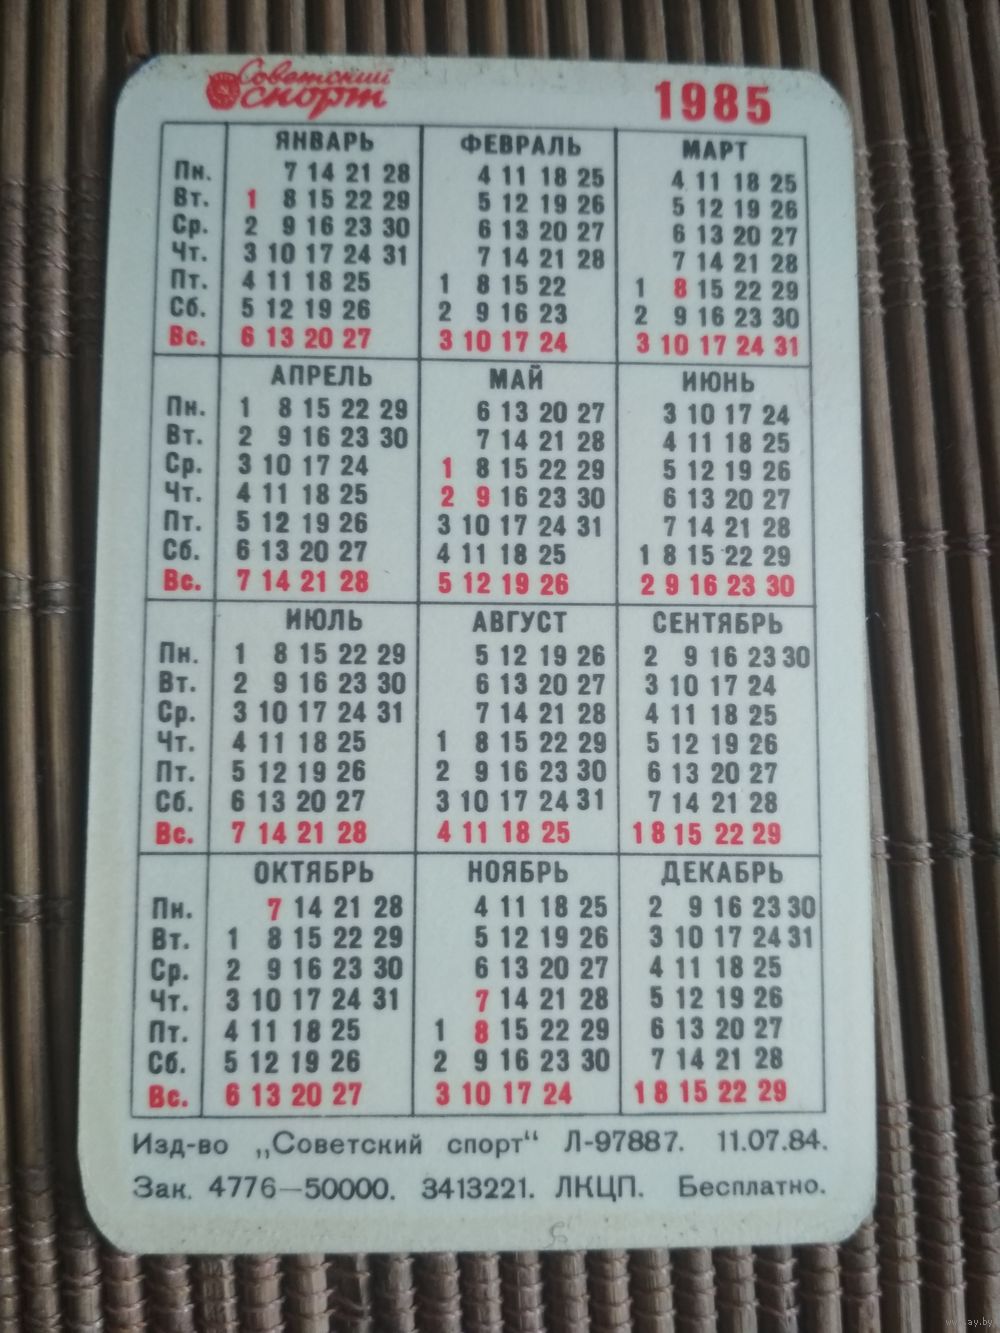 Советский
спорт
1985
ЯНВАРЬ ФЕВРАЛЬ МАРТ
Пн. 7 14 21 28 4 11 18 25 4 11 18 25
Вт. 1 8 15 22 29 5 12 19 26 5 12 19 26
Ср. 2 9 16 23 30 6 13 20 27 6 13 20 27
Чт. 3 10 17 24 31 7 14 21 28 7 14 21 28
Пт. 4 11 18 25 1 8 15 22 1 8 15 22 29
Сб. 5 12 19 26 2 9 16 23 2 9 16 23 30
Вс. 6 13 20 27 3 10 17 24 3 10 17 24 31
АПРЕЛЬ МАЙ ИЮНЬ
Пн. 1 8 15 22 29 6 13 20 27 3 10 17 24
Вт. 2 9 16 23 30 7 14 21 28 4 11 18 25
Ср. 3 10 17 24 1 8 15 22 29 5 12 19 26
Чт. 4 11 18 25 2 9 16 23 30 6 13 20 27
Пт. 5 12 19 26 3 10 17 24 31 7 14 21 28
Сб. 6 13 20 27 4 11 18 25 1 8 15 22 29
Вс. 7 14 21 28 5 12 19 26 2 9 16 23 30
ИЮЛЬ АВГУСТ СЕНТЯБРЬ
Пн. 1 8 15 22 29 5 12 19 26 2 9 16 23 30
Вт. 2 9 16 23 30 6 13 20 27 3 10 17 24
Ср. 3 10 17 24 31 7 14 21 28 4 11 18 25
Чт. 4 11 18 25 1 8 15 22 29 5 12 19 26
Пт. 5 12 19 26 2 9 16 23 30 6 13 20 27
Сб. 6 13 20 27 3 10 17 24 31 7 14 21 28
Вс. 7 14 21 28 4 11 18 25 1 8 15 22 29
ОКТЯБРЬ НОЯБРЬ ДЕКАБРЬ
Пн. 7 14 21 28 4 11 18 25 2 9 16 23 30
Вт. 1 8 15 22 29 5 12 19 26 3 10 17 24 31
Ср. 2 9 16 23 30 6 13 20 27 4 11 18 25
Чт. 3 10 17 24 31 7 14 21 28 5 12 19 26
Пт. 4 11 18 25 1 8 15 22 29 6 13 20 27
Сб. 5 12 19 26 2 9 16 23 30 7 14 21 28
Вс. 6 13 20 27 3 10 17 24 1 8 15 22 29
Изд-во „Советский спорт“ Л-97887. 11.07.84.
Зак. 4776—50000. 3413221. ЛКЦП. Бесплатно.
www.ay.by